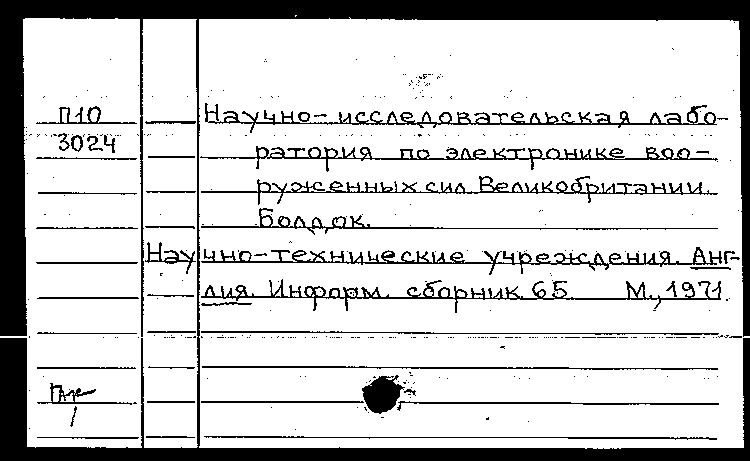 П10 Научно-исследовательская лабо-
3024
ратория по электронике воо-
руженных сил Великобритании.
Болдок.
Научно-технические учреждения. Анг-
лия. Информ. сборник 65 М., 1971.
1